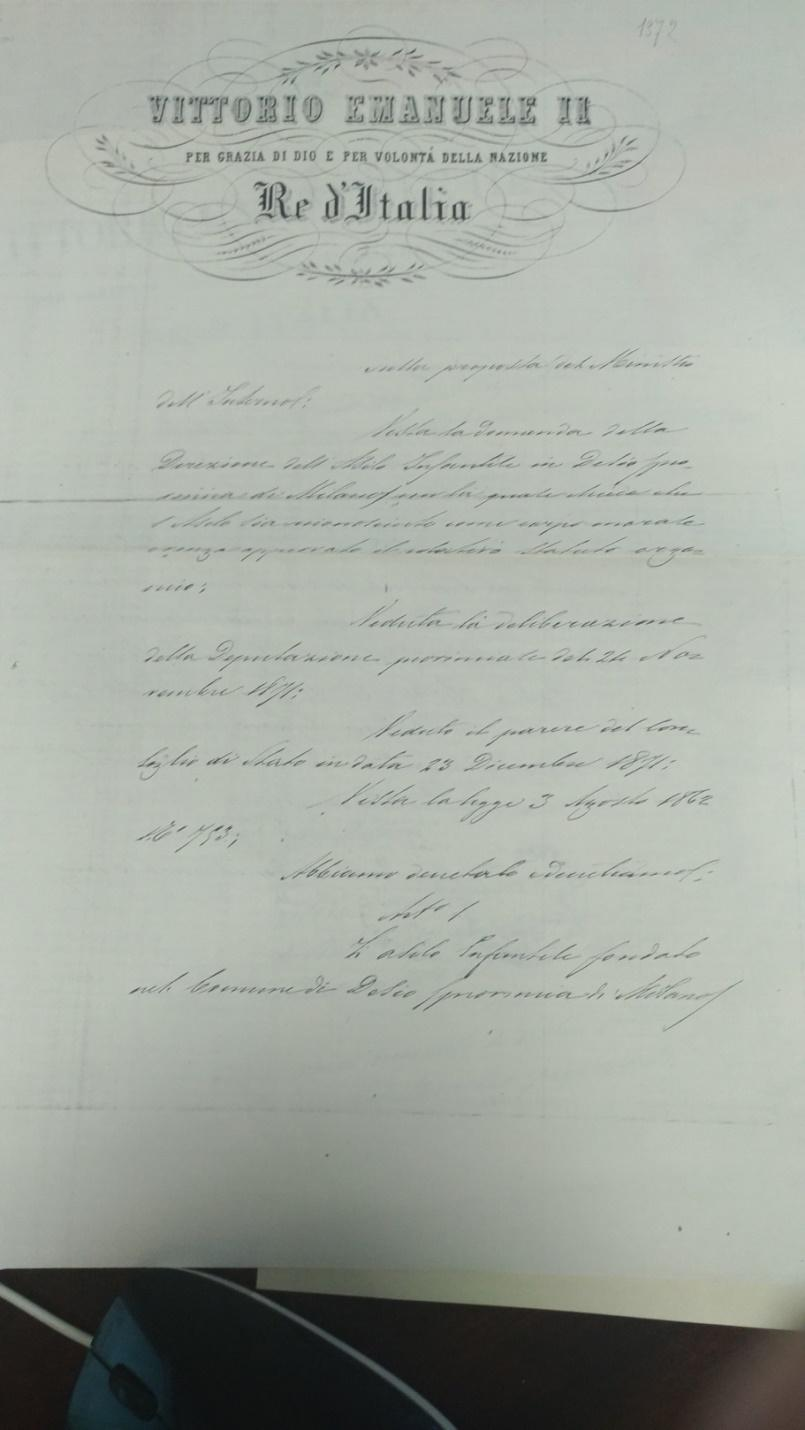 1872
VITTORIO EMANUELE II
PER GRAZIA DI DIO E PER VOLONTÁ DELLA NAZIONE
Re d'Italia
sulla proposta del Ministro
dell'Interno:
Vista la domanda della
Direzione dell'Asilo Infantile in Desio (pro-
vincia di Milano) con la quale chiede che
l'Asilo sia riconosciuto come corpo morale
approvato il relativo Statuto orga-
nico;
Veduta la deliberazione
della Deputazione provinciale del 24 No-
vembre 1871;
Veduto il parere del Con-
siglio di Stato in data 23 Dicembre 1871;
Vista la legge 3 Agosto 1862
N° 753;
Abbiamo decretato e decretiamo:
Art° 1
L'asilo Infantile fondato
nel Comune di Desio (provincia di Milano)